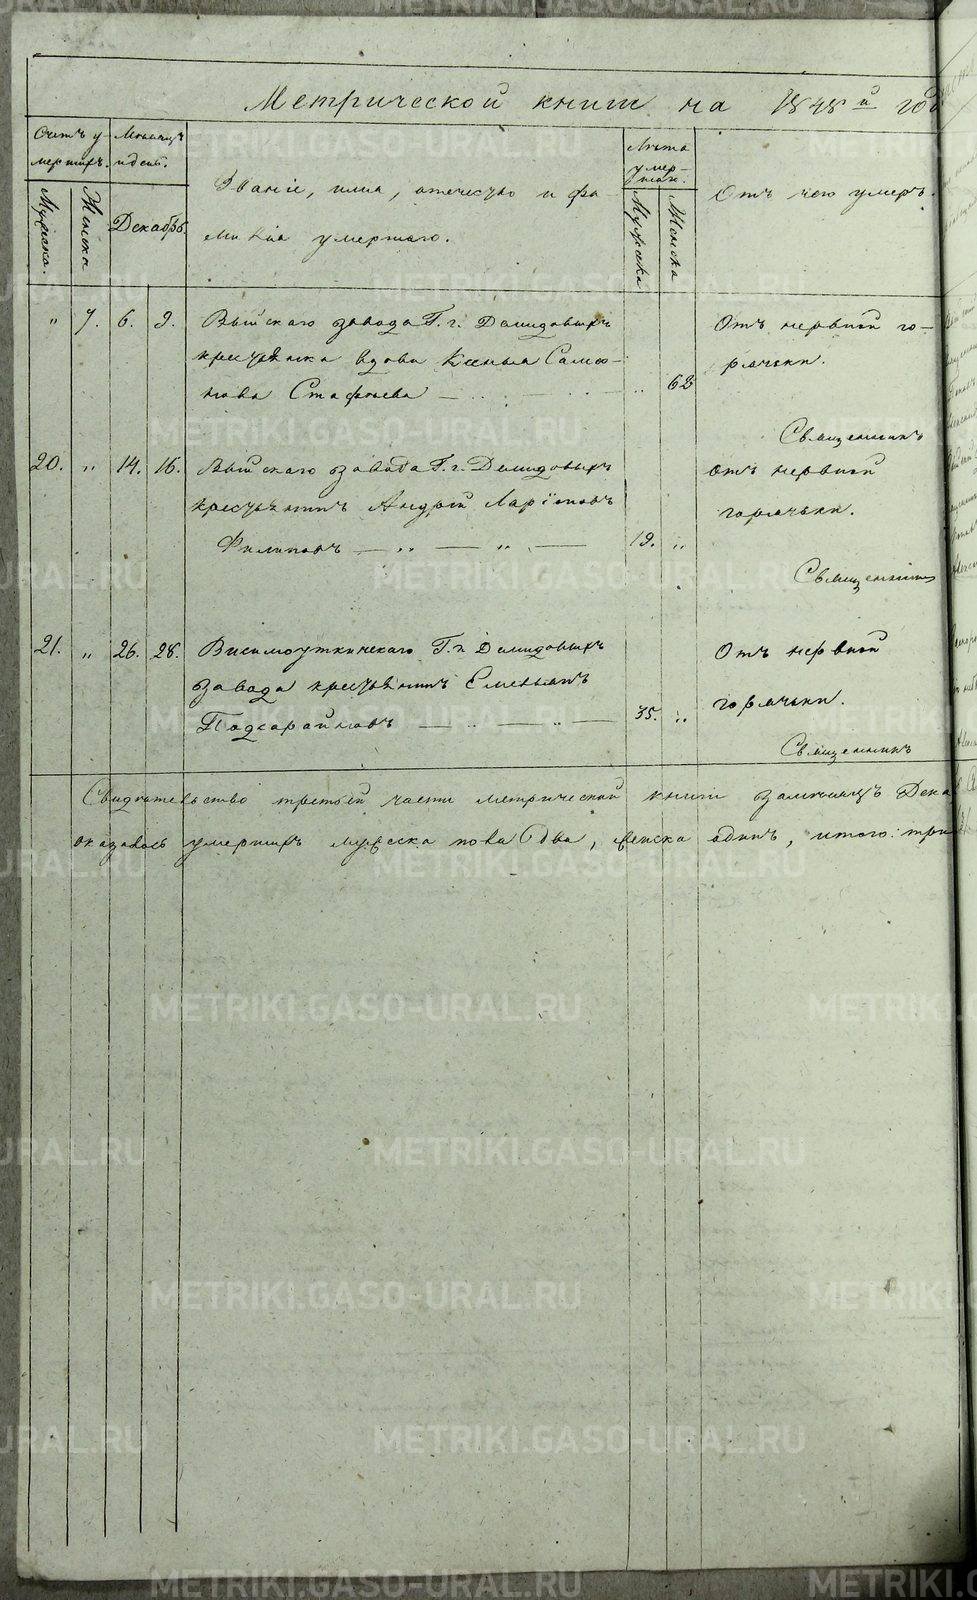 Метрической книги на 1848й год
Счетъ у-
мершихъ.
Мужеска.
Женска
Месяцъ
и день.
Декабрь.
Званіе, имя, отечество и фа
милія умершаго.
Лета
умер-
шаго.
Мужеска
Женска
Отъ чего умеръ.
" 7. 6. 9. Выйскаго завода Г. г. Демидовыхъ
крестьянка вдова Ксенья Само-
нова Стафеева 62
Отъ нервной го-
рячки.
Священникъ
20. " 14. 16. Выйскаго завода Г. г. Демидовыхъ
крестьянинъ Андрей Ларіоновъ
Филиповъ — " — " — 19. "
отъ нервной
горячки.
Священникъ
21. " 26. 28. Висимоуткинскаго Г. г. Демидовыхъ
завода крестьянинъ Емельянъ
Подсарайновъ — " — " — 35. "
Отъ нервной
горячки.
Священникъ
Свидетельство третьей части метрической книги за месяцъ Дека
оказалось умершихъ мужеска пола два, женска одинъ, итого: три
METRIKI.GASO-URAL.RU